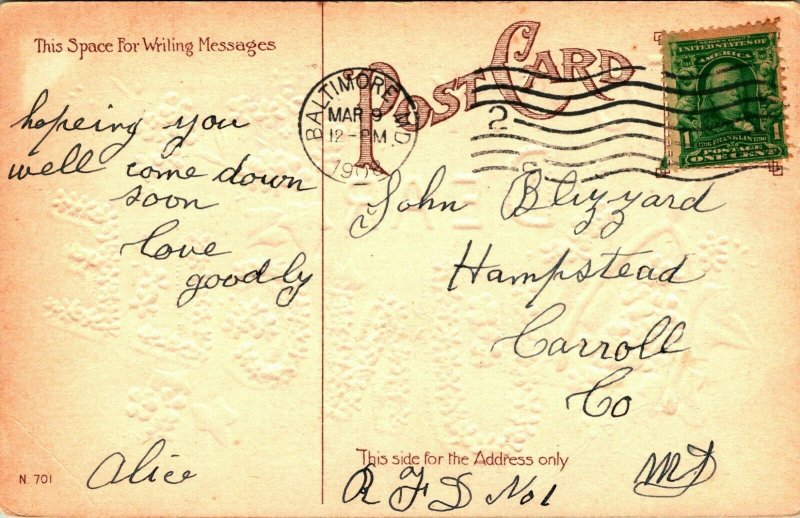 This Space For Writing Messages
hopeing you
well come down
soon
love
goodby
Alice
N. 701
POST CARD
BALTIMORE, MD.
MAR 9
12-PM
190
2
UNITED STATES OF
AMERICA
1 1
FRANKLIN
POSTAGE
ONE CENT
John Blizzard
Hampstead
Carroll
Co
This side for the Address only
Md
R F D No 1